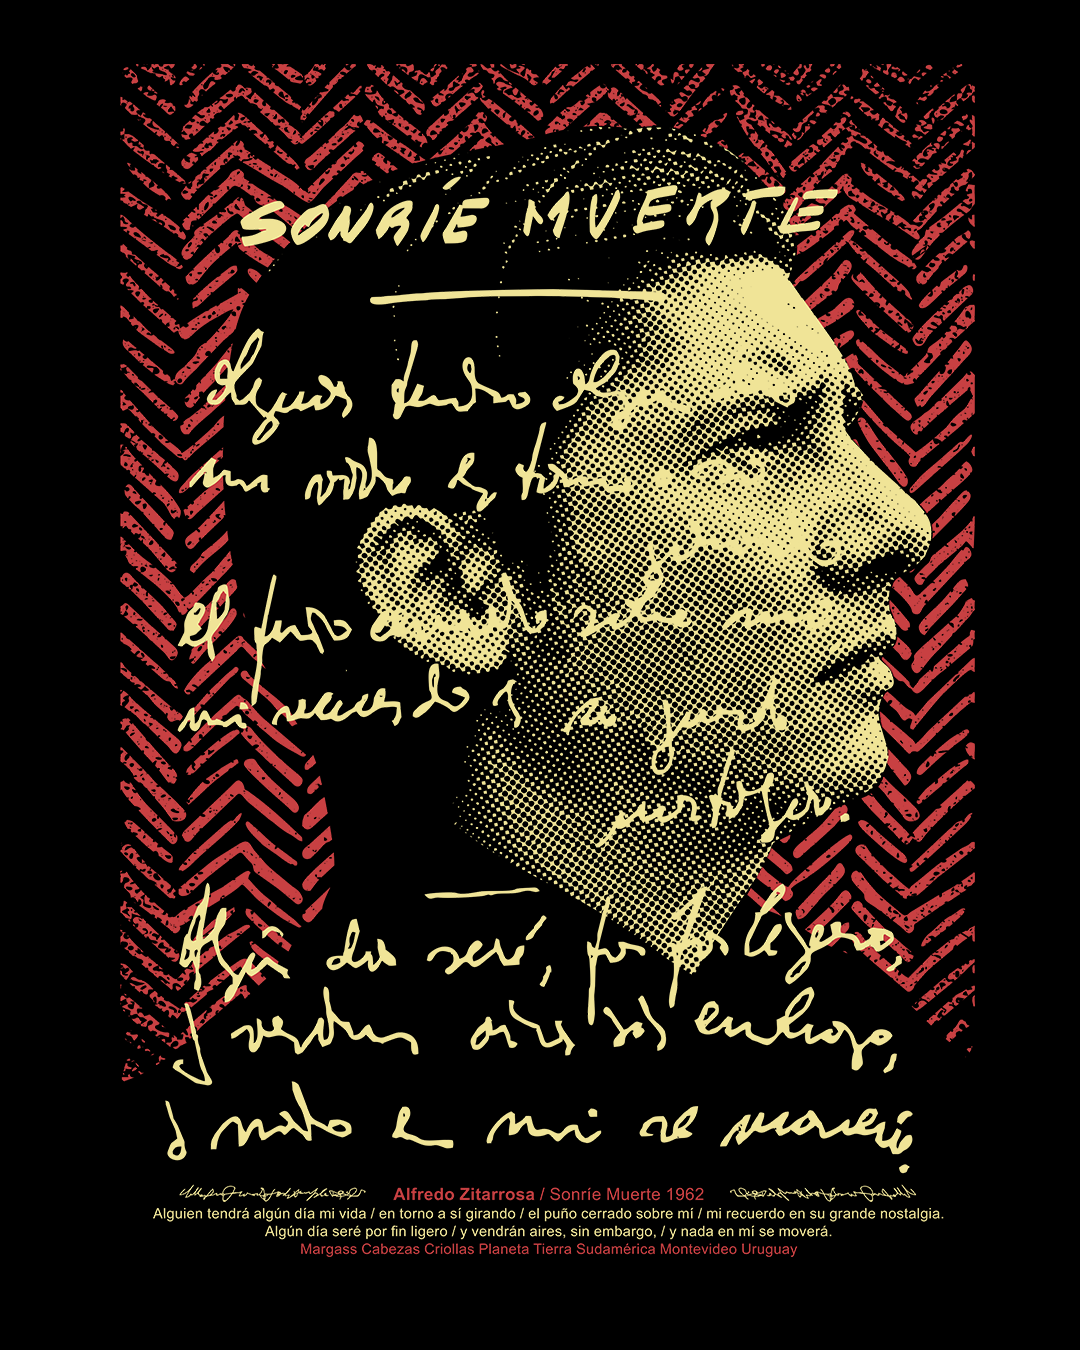 SONRÍE MUERTE
Alguien tendrá algún
mi vida en torno
sí
el puño cerrado sobre mí
mi recuerdo en su grande
nostalgia.
Algún día seré, por fin ligero,
y vendrán aires, sin embargo,
y nada en mí se moverá.
Alfredo Zitarrosa / Sonríe Muerte 1962
Alguien tendrá algún día mi vida / en torno a sí girando / el puño cerrado sobre mí / mi recuerdo en su grande nostalgia.
Algún día seré por fin ligero / y vendrán aires, sin embargo, / y nada en mí se moverá.
Margass Cabezas Criollas Planeta Tierra Sudamérica Montevideo Uruguay